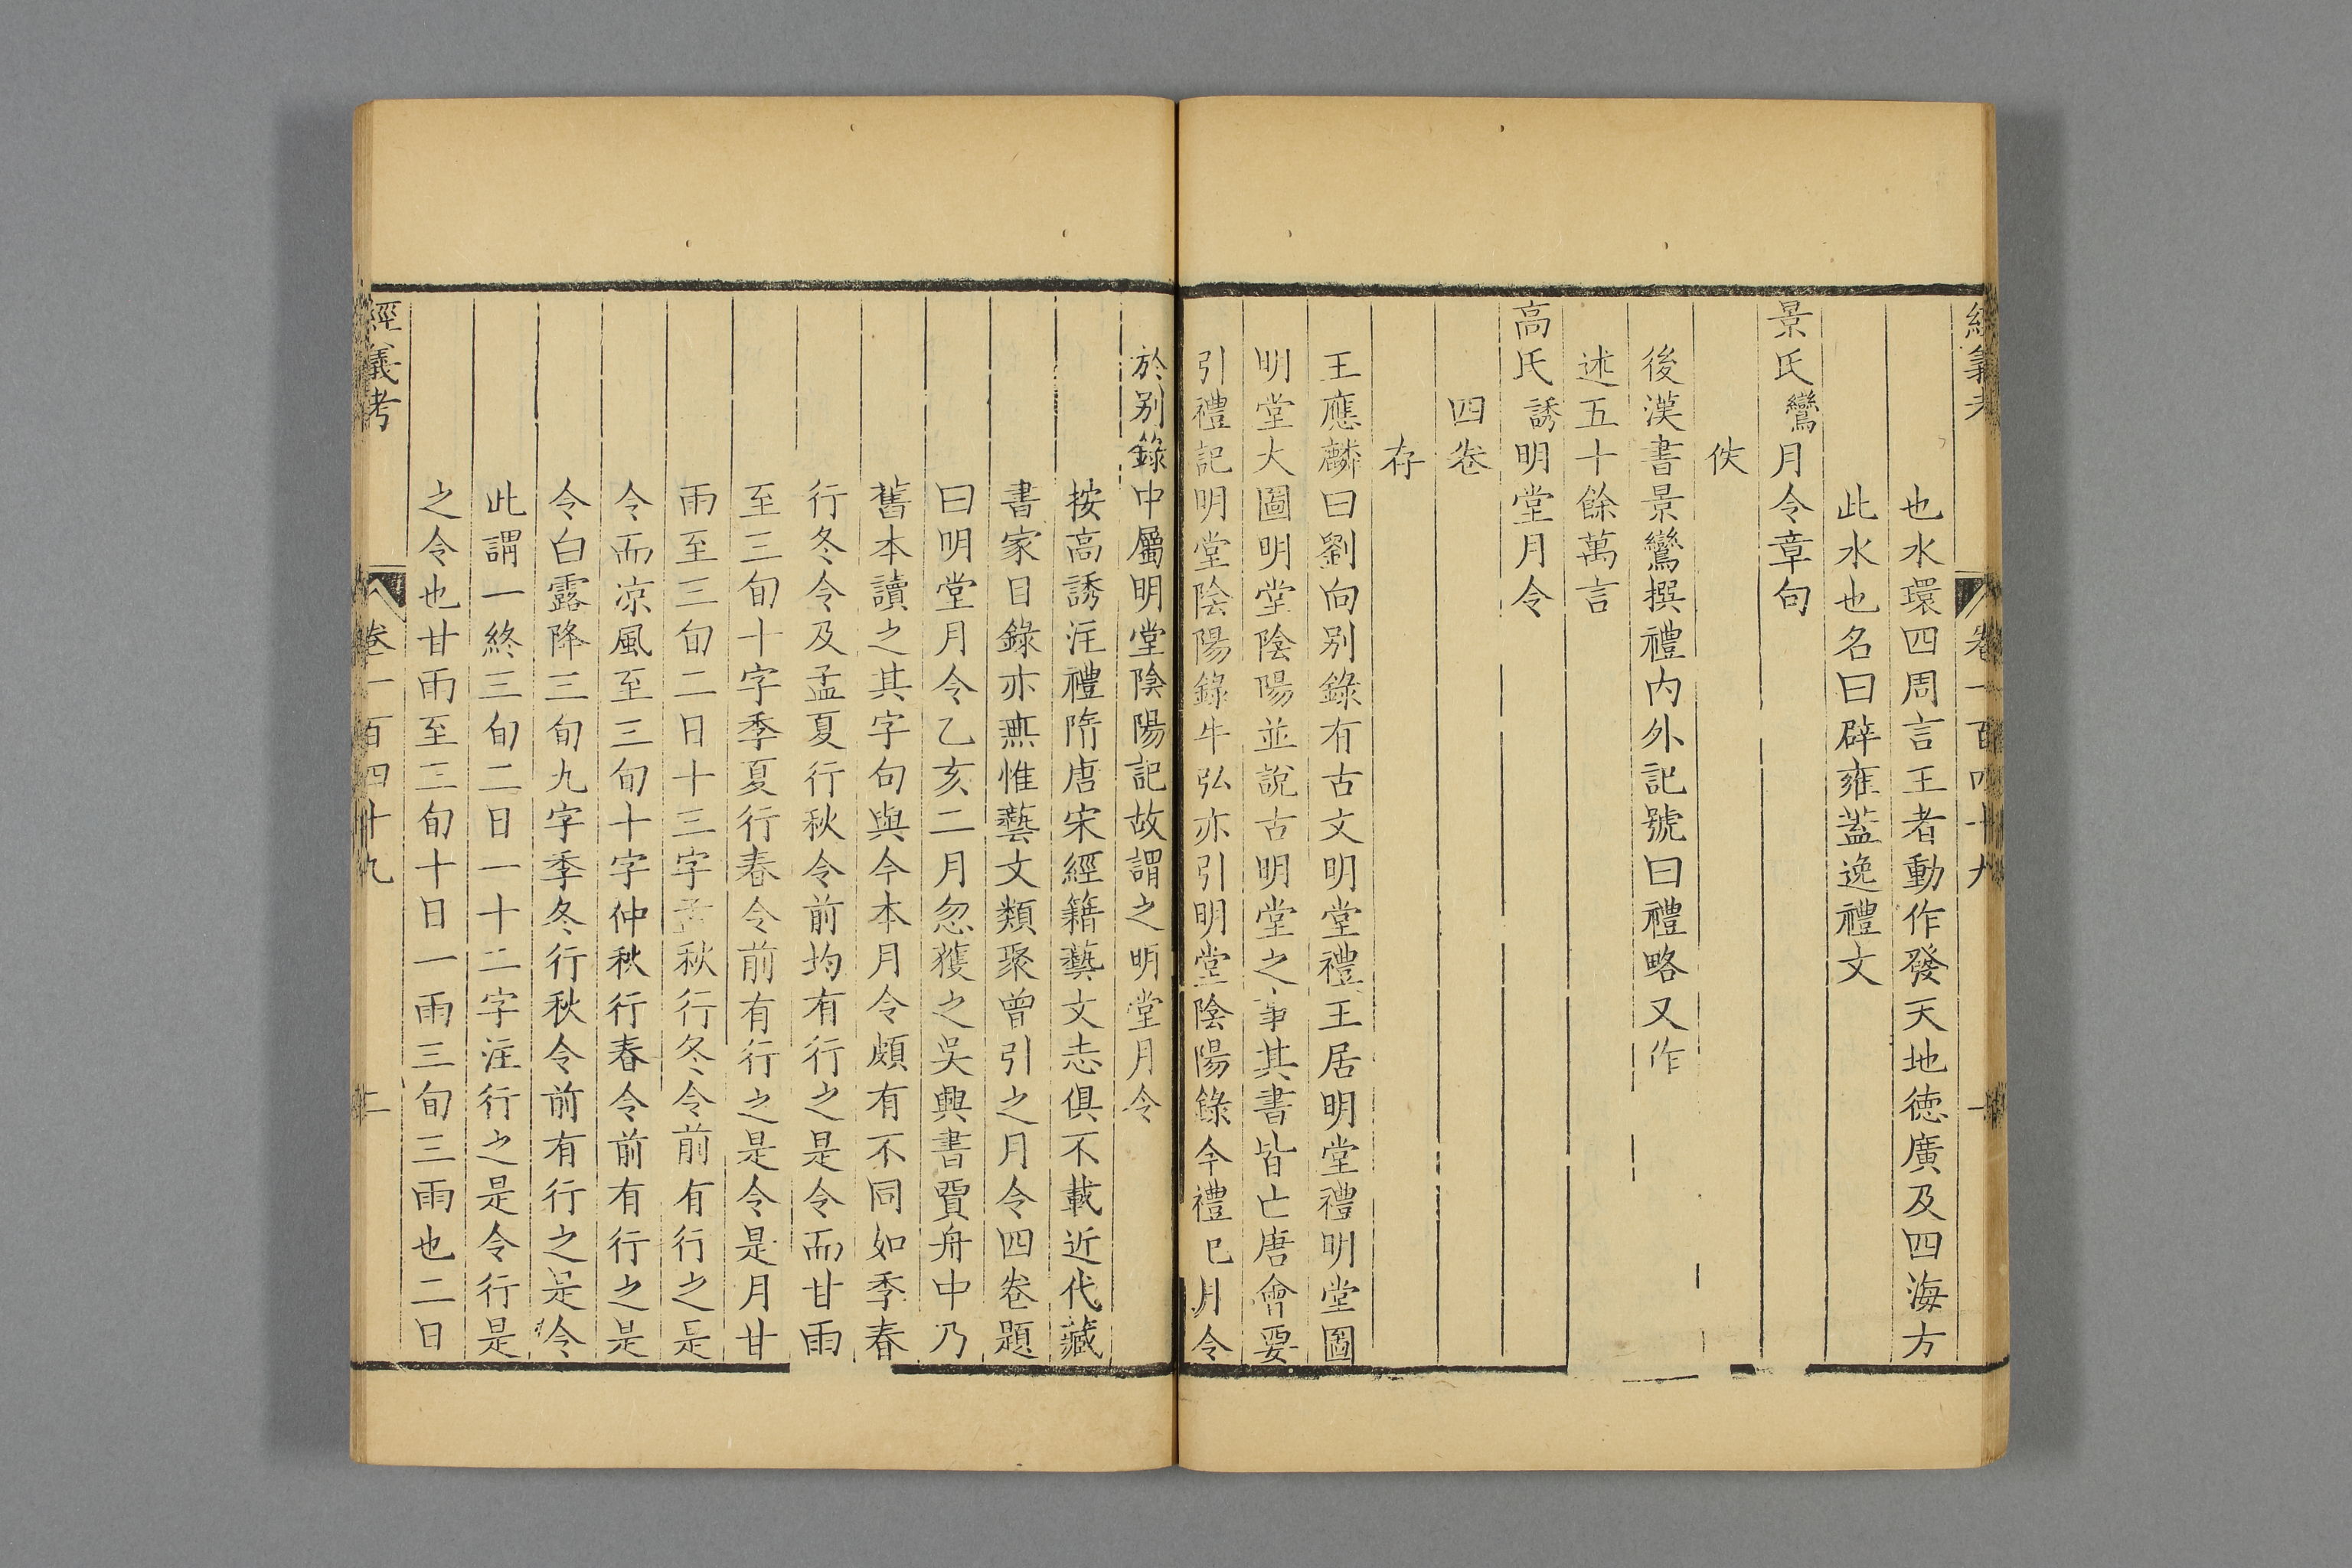 經義考 卷一百四十九 十
也水環四周言王者動作發天地徳廣及四海方
此水也名曰辟雍葢逸禮文
景氏鸞月令章句
佚
後漢書景鸞撰禮内外記號曰禮略又作
述五十餘萬言
高氏誘明堂月令
四卷
存
王應麟曰劉向别錄有古文明堂禮王居明堂禮明堂圖
明堂大圖明堂陰陽並說古明堂之事其書皆亡唐會要
引禮記明堂陰陽錄牛弘亦引明堂陰陽錄今禮記月令
於别錄中屬明堂陰陽記故謂之明堂月令
按高誘注禮隋唐宋經籍藝文志俱不載近代藏
書家目錄亦無惟藝文類聚曾引之月令四卷題
曰明堂月令乙亥二月忽獲之吳興書賈舟中乃
舊本讀之其字句與今本月令頗有不同如季春
行冬令及孟夏行秋令前均有行之是令而甘雨
至三旬十字季夏行春令前有行之是令是月甘
雨至三旬二日十三字孟秋行冬令前有行之是
令而凉風至三旬十字仲秋行春令前有行之是
令白露降三旬九字季冬行秋令前有行之是令
此謂一終三旬二日一十二字注行之是令行是
之令也甘雨至三旬十日一雨三旬三雨也二日
經義考 卷一百四十九 二